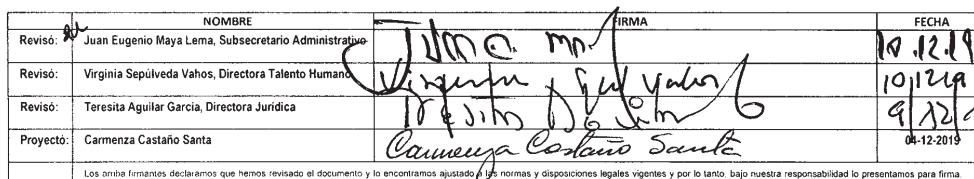 NOMBRE FIRMA FECHA
Revisó: Juan Eugenio Maya Lema, Subsecretario Administrativo 10.12.19
Revisó: Virginia Sepúlveda Vahos, Directora Talento Humano Virginia Sepúlveda Vahos 10/12/19
Revisó: Teresita Aguilar García, Directora Jurídica 9/12/
Proyectó: Carmenza Castaño Santa Carmenza Castaño Santa 04-12-2019
Los arriba firmantes declaramos que hemos revisado el documento y lo encontramos ajustado a las normas y disposiciones legales vigentes y por lo tanto, bajo nuestra responsabilidad lo presentamos para firma.